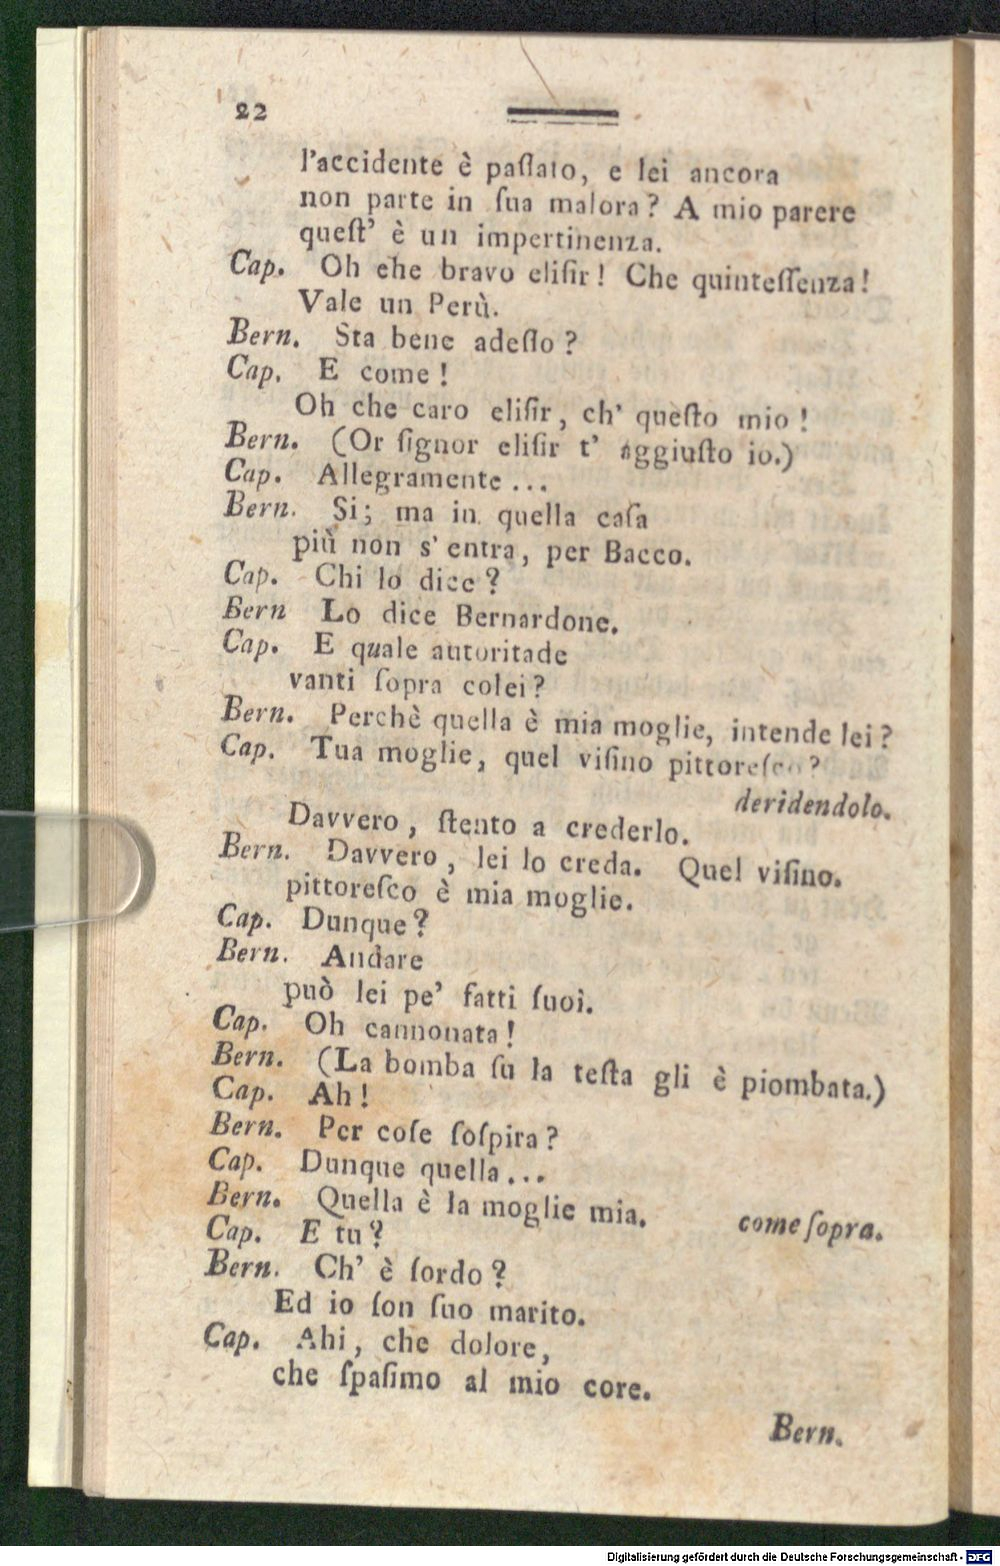 22
l'accidente è paſſato, e lei ancora
non parte in ſua malora? A mio parere
queſt' è un impertinenza.
Cap. Oh che bravo eliſir! Che quinteſſenza!
Vale un Perù.
Bern. Sta bene adeſſo?
Cap. E come!
Oh che caro eliſir, ch' queſto mio!
Bern. (Or ſignor eliſir t' aggiuſto io.)
Cap. Allegramente...
Bern. Si; ma in quella caſa
più non s' entra, per Bacco.
Cap. Chi lo dice?
Bern Lo dice Bernardone.
Cap. E quale autoritade
vanti ſopra colei?
Bern. Perchè quella è mia moglie, intende lei?
Cap. Tua moglie, quel viſino pittoreſco?
deridendolo.
Davvero, ſtento a crederlo.
Bern. Davvero, lei lo creda. Quel viſino.
pittoreſco è mia moglie.
Cap. Dunque?
Bern. Andare
può lei pe' fatti ſuoi.
Cap. Oh cannonata!
Bern. (La bomba ſu la teſta gli è piombata.)
Cap. Ah!
Bern. Per coſe ſoſpira?
Cap. Dunque quella...
Bern. Quella è la moglie mia. come ſopra.
Cap. E tu?
Bern. Ch' è ſordo?
Ed io ſon ſuo marito.
Cap. Ahi, che dolore,
che ſpaſimo al mio core.
Bern.
Digitalisierung gefördert durch die Deutsche Forschungsgemeinschaft - DFG